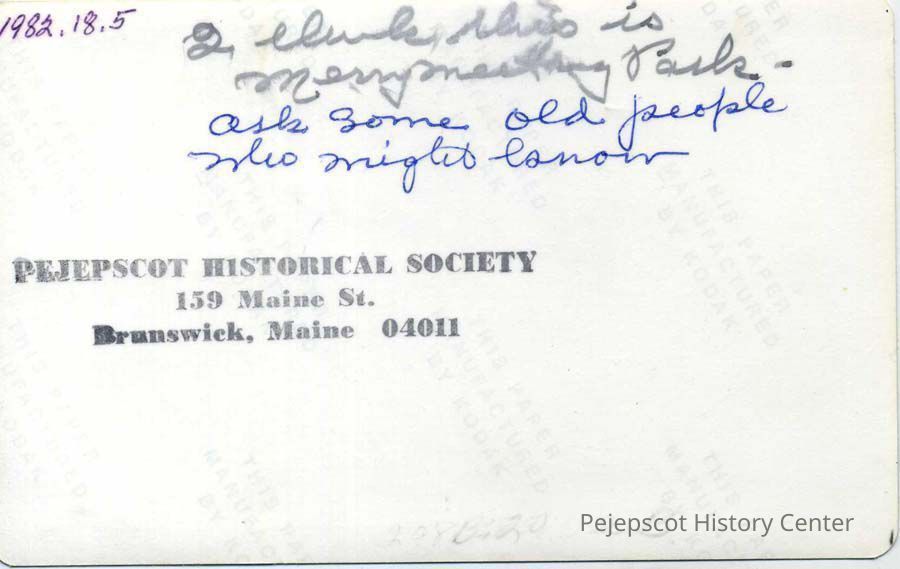 1982.18.5
I think this is
Merrymeeting Park -
ask some old people
who might know
PEJEPSCOT HISTORICAL SOCIETY
159 Maine St.
Brunswick, Maine 04011
THIS PAPER
MANUFACTURED
BY KODAK
Pejepscot History Center